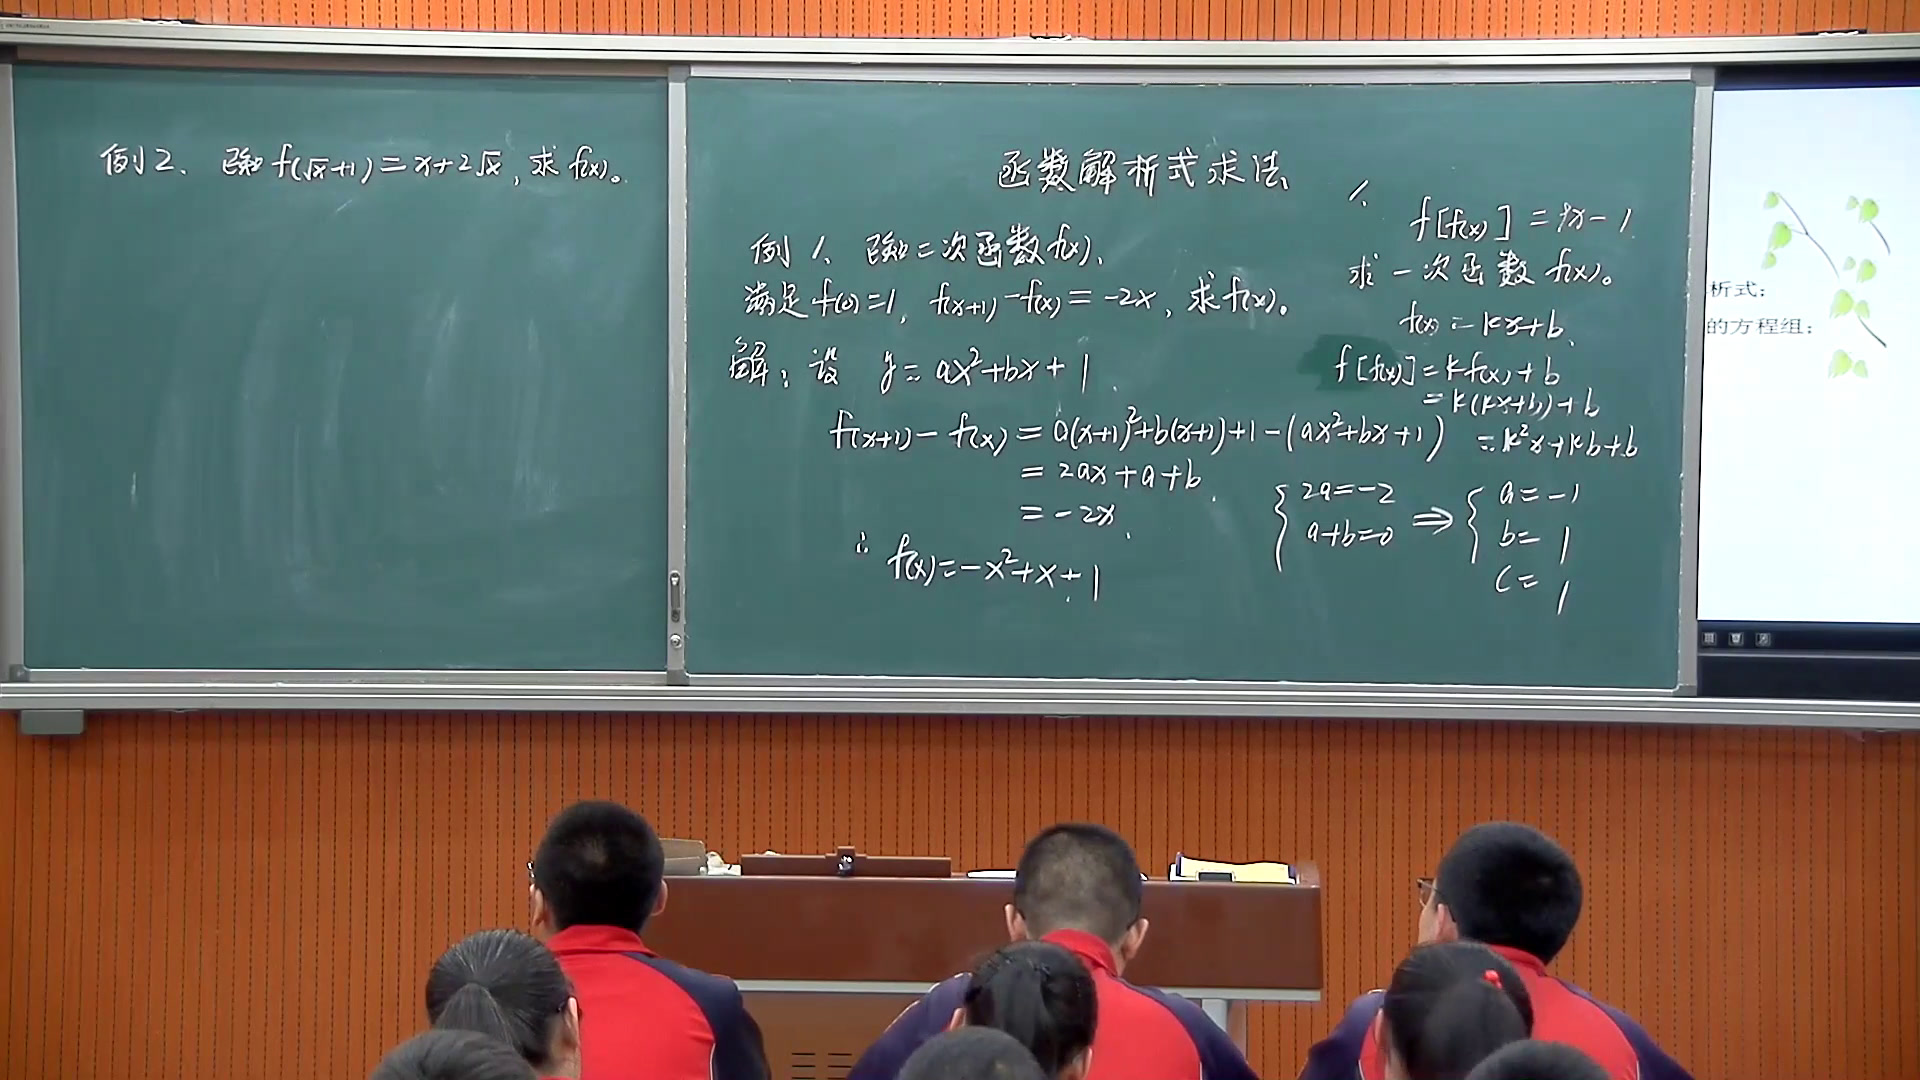 例2、已知f(√x+1)=x+2√x,求f(x)。
函数解析式求法
例1、已知二次函数f(x)、
满足f(0)=1,f(x+1)-f(x)=-2x,求f(x)。
解:设 y=ax²+bx+1
f(x+1)-f(x)=a(x+1)²+b(x+1)+1-(ax²+bx+1)
=2ax+a+b
=-2x
{2a=-2
a+b=0
⇒ {a=-1
b=1
c=1
∴ f(x)=-x²+x+1
1、
求一次函数f(x)。
f(x)=kx+b
f[f(x)]=kf(x)+b
=k(kx+b)+b
=k²x+kb+b
析式:
的方程组: